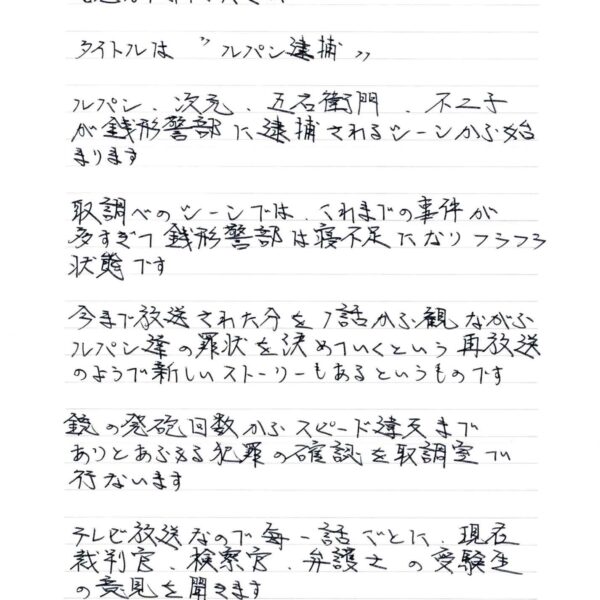 タイトルは " ルパン逮捕 "
ルパン、次元、五右衛門、不二子
が銭形警部に逮捕されるシーンから始
まります
取調べのシーンでは、これまでの事件が
多すぎて銭形警部は寝不足になりフラフラ
状態です
今まで放送された分を1話から観ながら
ルパン達の罪状を決めていくという再放送
のようで新しいストーリーもあるというものです
銃の発砲回数からスピード違反まで
ありとあらゆる犯罪の確認を取調室で
行ないます
テレビ放送なので毎一話ごとに、現在
裁判官、検察官、弁護士の受験生
の意見を聞きます